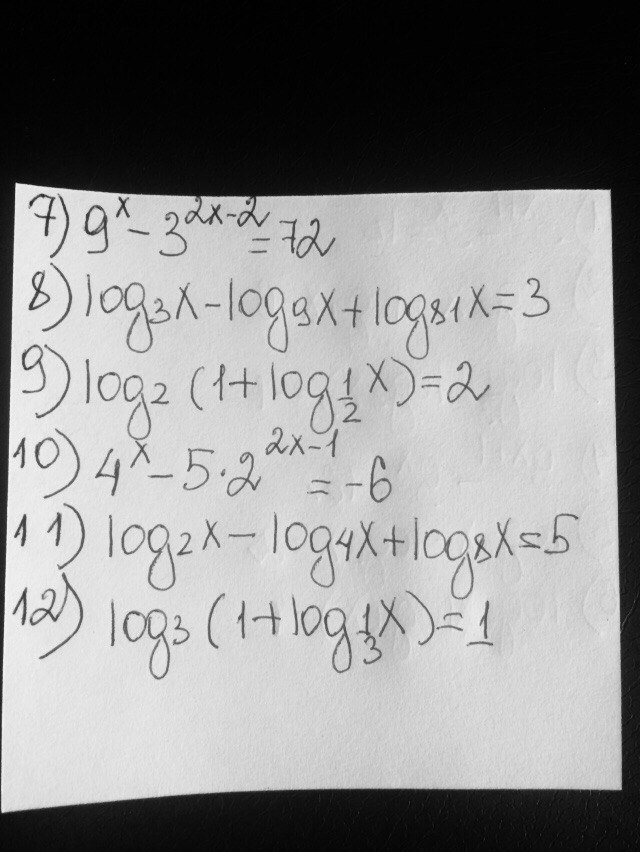 7) 9^x - 3^{2x-2} = 72
8) log_3 x - log_9 x + log_{81} x = 3
9) log_2 (1 + log_{1/2} x) = 2
10) 4^x - 5·2^{2x-1} = -6
11) log_2 x - log_4 x + log_8 x = 5
12) log_3 (1 + log_{1/3} x) = 1